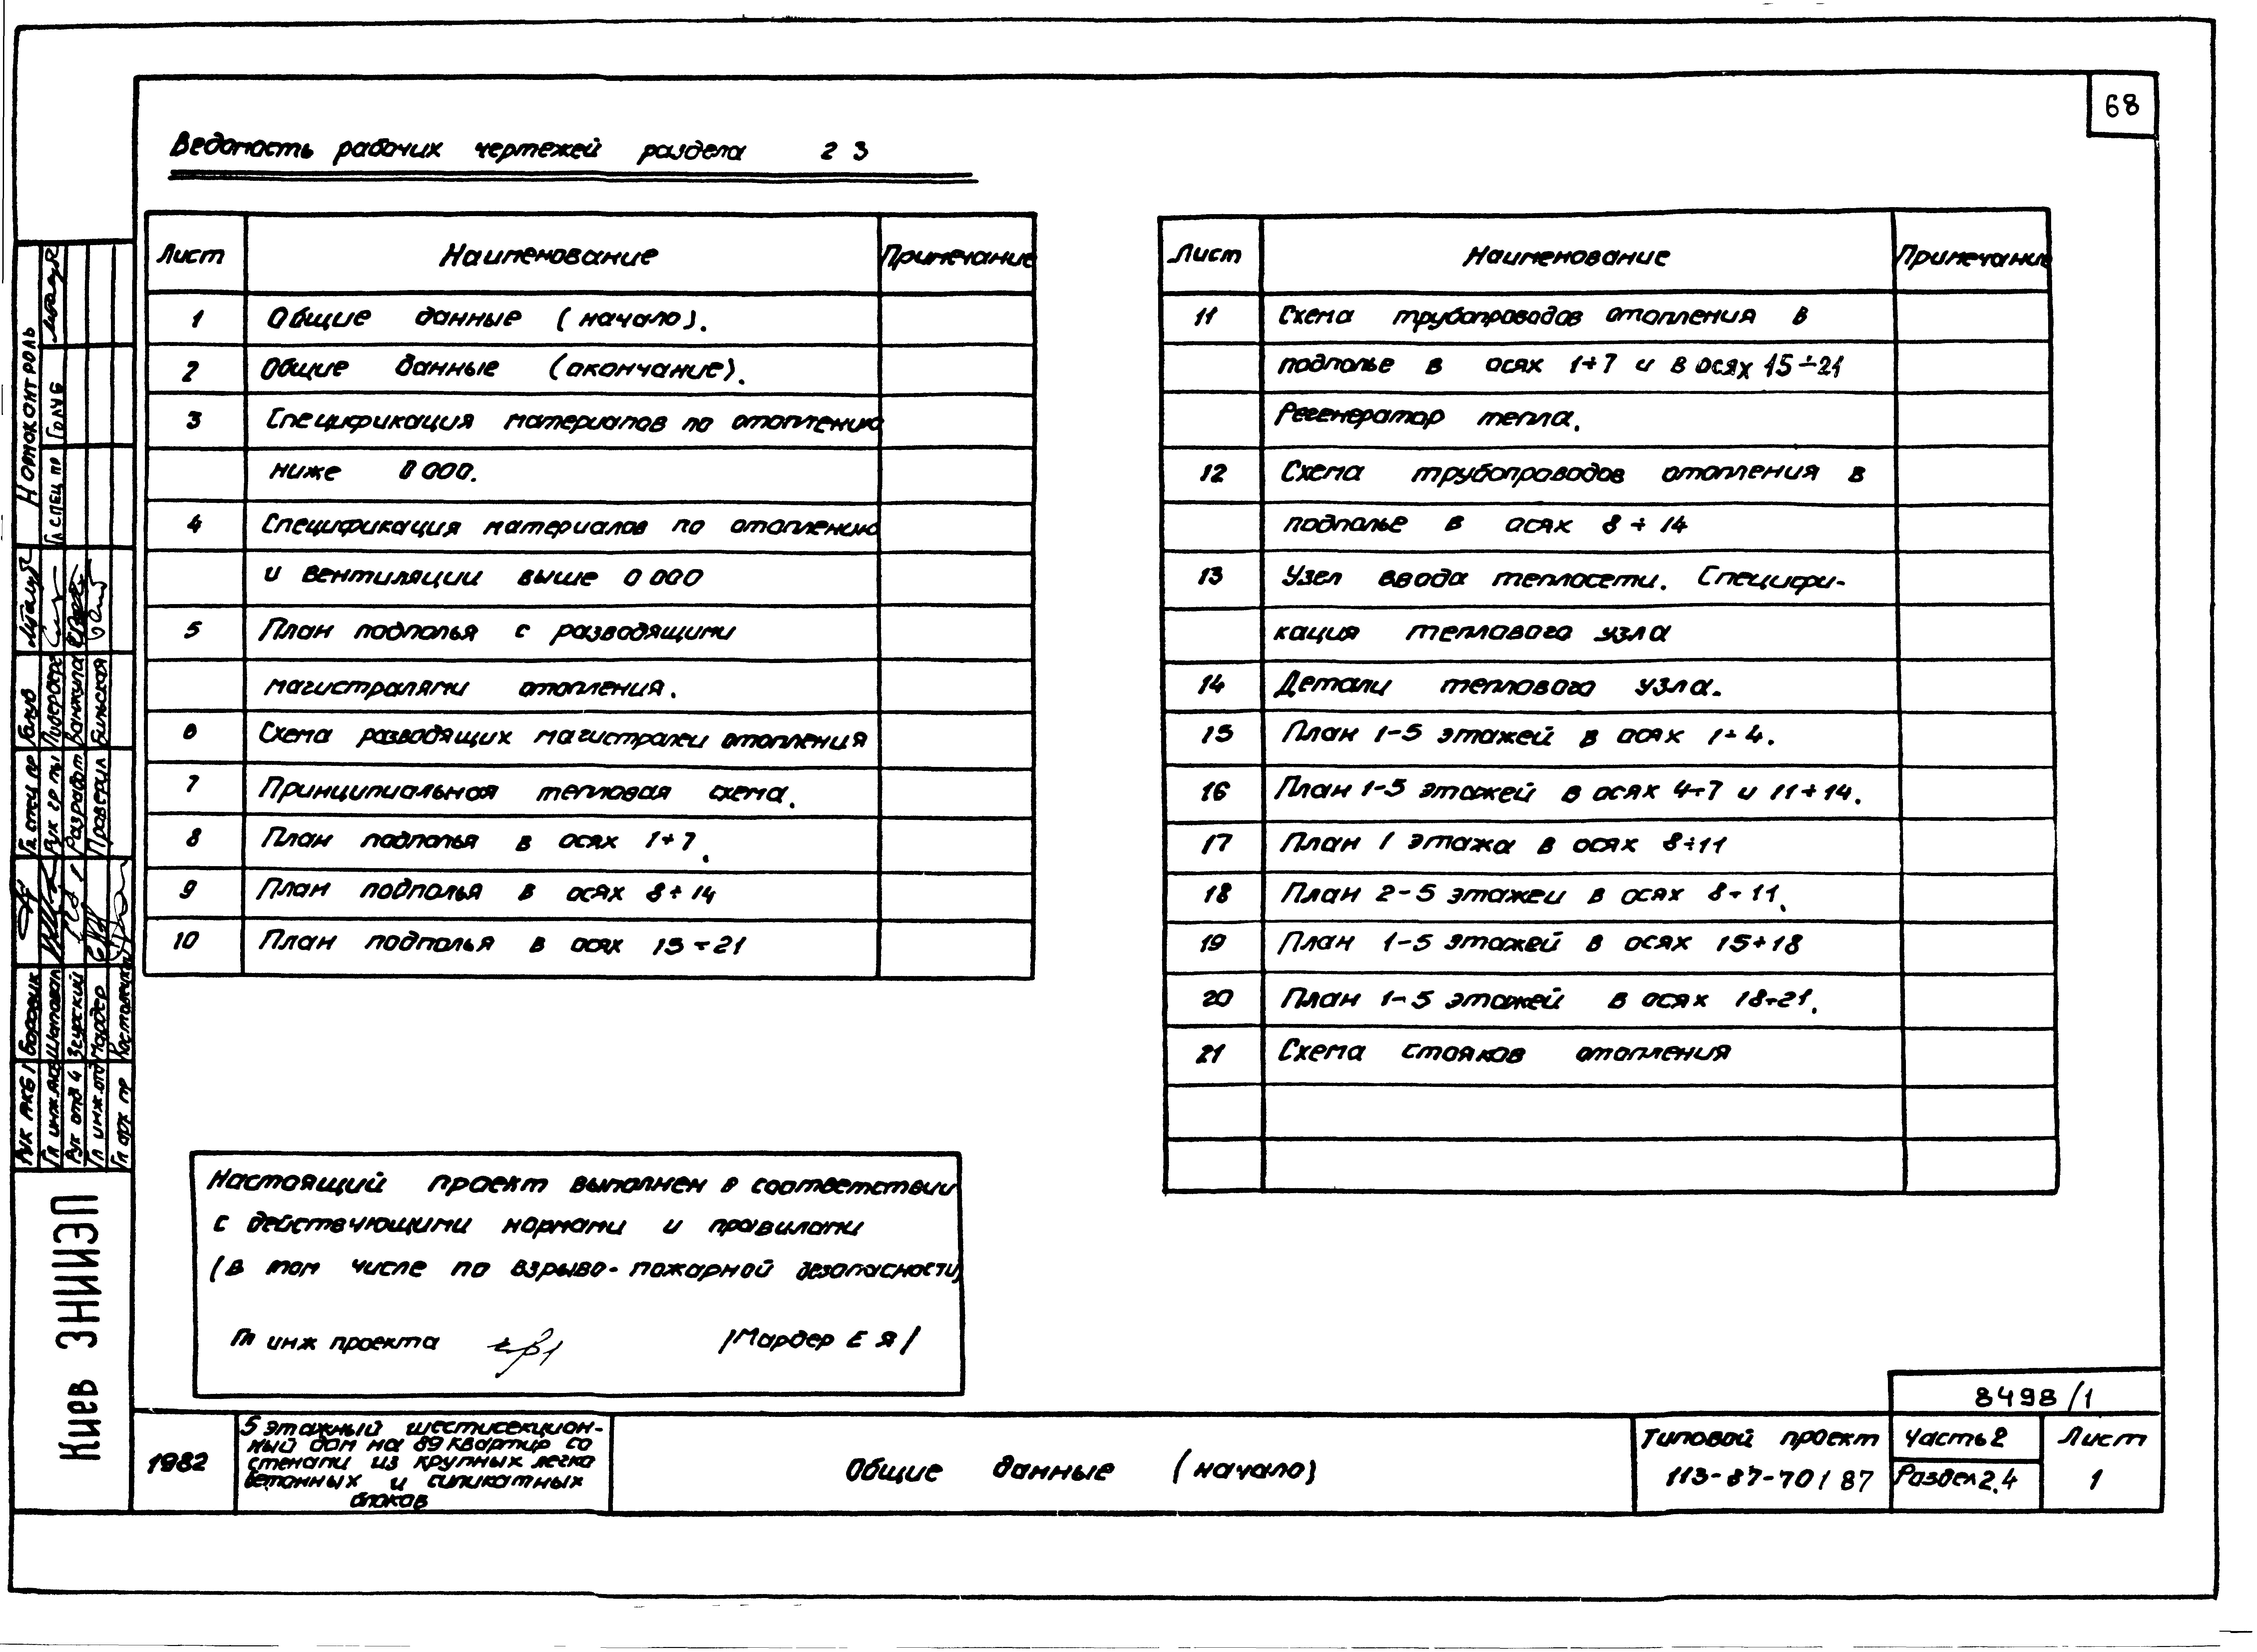 68
Ведомость рабочих чертежей раздела 2 3
Лист Наименование Примечание
1 Общие данные (начало).
2 Общие данные (окончание).
3 Спецификация материалов по отоплению
ниже 0 000.
4 Спецификация материалов по отоплению
и вентиляции выше 0 000
5 План подполья с разводящими
магистралями отопления.
6 Схема разводящих магистралеи отопления
7 Принципиальная тепловая схема.
8 План подполья в осях 1÷7.
9 План подполья в осях 8÷14
10 План подполья в осях 15÷21
Лист Наименование Примечание
11 Схема трубопроводов отопления в
подполье в осях 1÷7 и в осях 15÷21
Регенератор тепла.
12 Схема трубопроводов отопления в
подполье в осях 8÷14
13 Узел ввода теплосети. Специфи-
кация теплового узла
14 Детали теплового узла.
15 План 1-5 этажей в осях 1÷4.
16 План 1-5 этажей в осях 4÷7 и 11÷14.
17 План 1 этажа в осях 8÷11
18 План 2-5 этажеи в осях 8÷11.
19 План 1-5 этажей в осях 15÷18
20 План 1-5 этажей в осях 18÷21.
21 Схема стояков отопления
Настоящий проект выполнен в соответствии
с действующими нормами и правилами
(в том числе по взрыво-пожарной безопасности)
Гл инж проекта /Мардер Е Я/
Нормоконтроль
Гл спец пр Голуб
Гл спец пр Голуб
Рук гр пы
Разработ Ванжула
Проверил Бильская
Рук АКБ 1 Боровик
Гл инж. АКБ Шаповал
Рук отд 4 Згурский
Гл инж. отд Мардер
Гл арх пр
Киев ЗНИИЭП
8498/1
1982
5 этажный шестисекцион-
ный дом на 89 квартир со
стенами из крупных легко
бетонных и силикатных
блоков
Общие данные (начало)
Типовой проект
113-87-70/87
Часть 2
Раздел 2.4
Лист
1